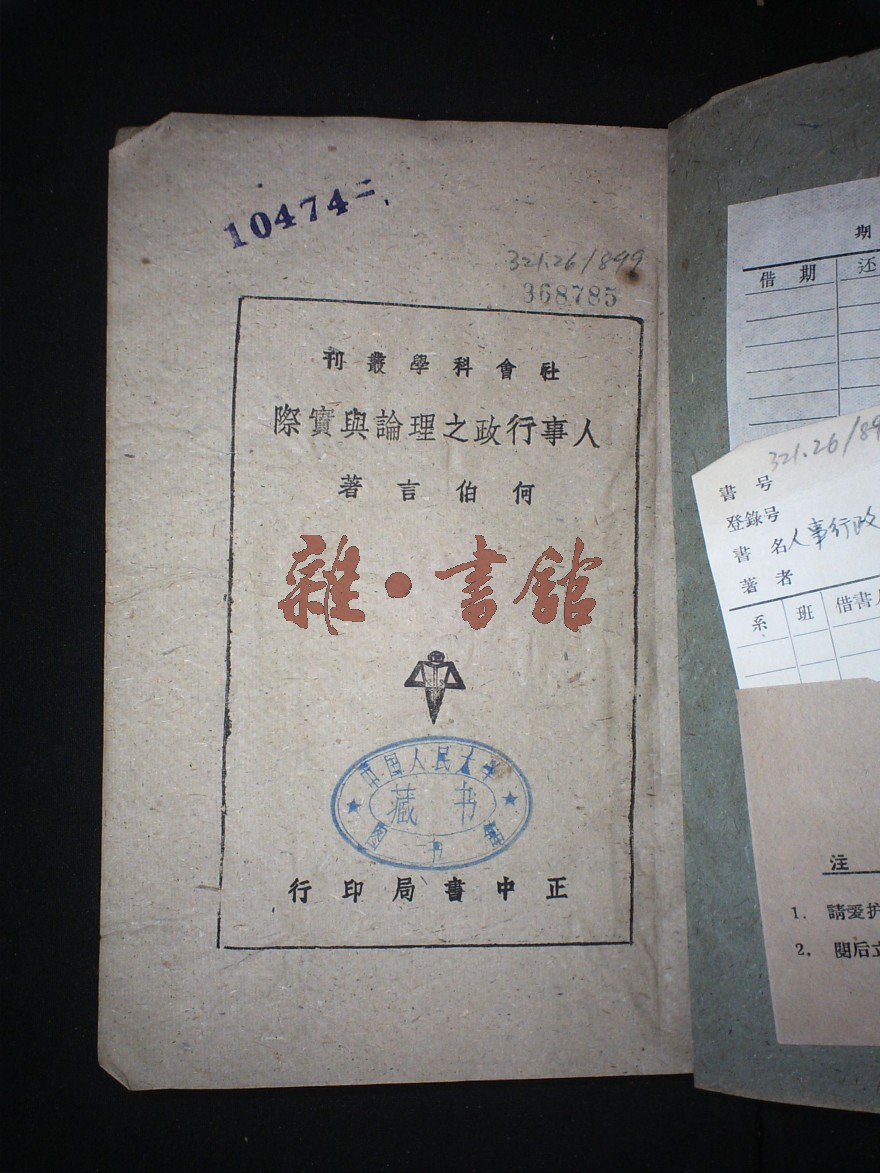 10474二
321.26/899
368785
社會科學叢刊
人事行政之理論與實際
何伯言著
雜·書館
中国人民大学
藏书
图书館
正中書局印行
期
借期 还
321.26/89
書号
登錄号
書名 人事行政
著者
系 班 借書人
注
1. 請爱护
2. 閱后立